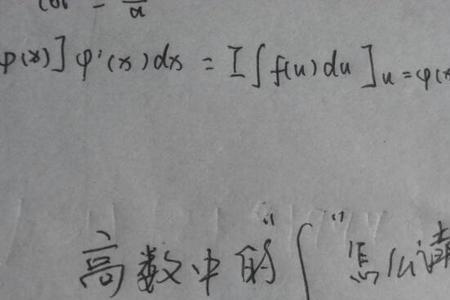 φ(x)]φ'(x)dx = [∫f(u)du]u=φ(x
高数中的"∫"怎么读